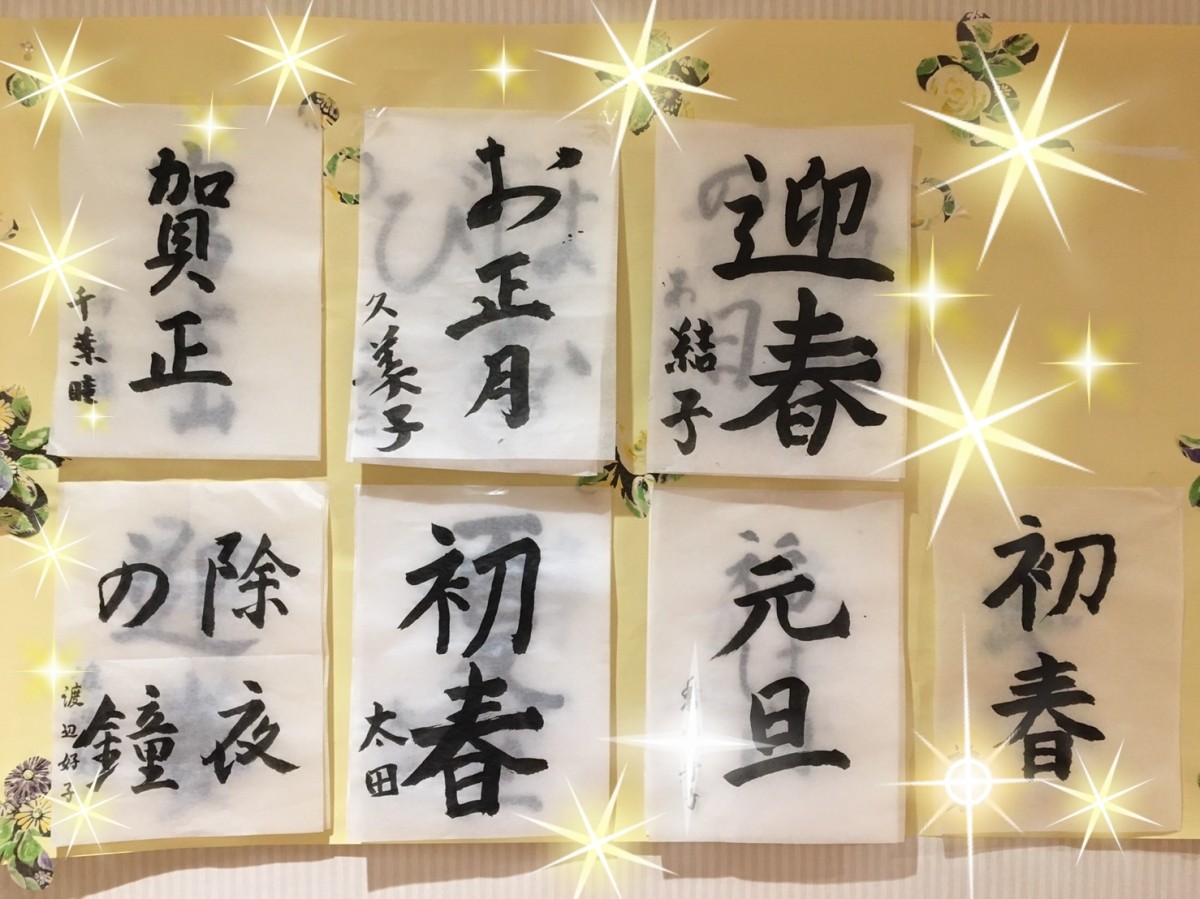 賀正
千葉睦
お正月
久美子
迎春
結子
除夜
の鐘
渡辺好子
初春
太田
元旦
初春